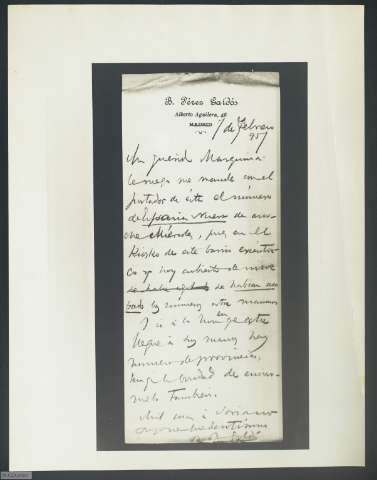 B. Pérez Galdós
Alberto Aguilera, 46
MADRID
1/ de Febrero
Mi querido Marquina
le ruego me mande con el
portador de ésta el número
de España Nueva de ano-
che Miércoles, pues en el
Kiosko de este barrio
se habían aca-
bado los números esta mañana
Si a la hora en que ésta
llegue a sus manos hay
número de provincias,
tenga la bondad de enviár-
melo también.
Mil cosas a Soriano